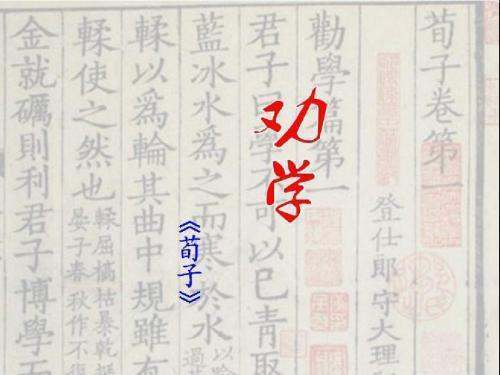 劝学
《荀子》
荀子卷第一
登仕郎守大理
勸學篇第一
君子曰學不可以已青取
藍冰水爲之而寒於水
輮以爲輪其曲中規雖有
輮使之然也
晏子春秋作不復
金就礪則利君子博學而